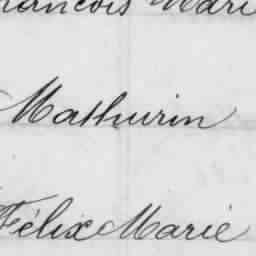 François Marie
Mathurin
Félix Marie